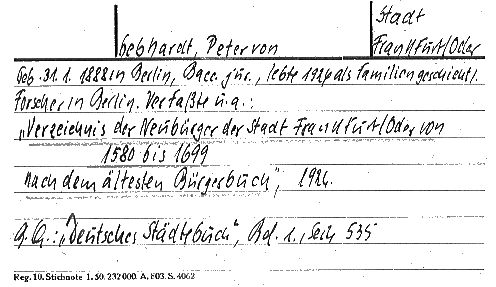 Stadt
Gebhardt, Peter von
Frankfurt/Oder
Geb. 31.1.1888 in Berlin, Bacc. jur., lebte 1924 als Familiengeschichtl.
Forscher in Berlin. Verfaßte u.a.:
„Verzeichnis der Neubürger der Stadt Frankfurt/Oder von
1580 bis 1699
Nach dem ältesten Bürgerbuch", 1924.
G.Q.: „Deutsches Städtebuch", Bd. 1., Seite 535
Reg. 10. Stichnote 1. 50. 232 000. A. 803. S. 4062